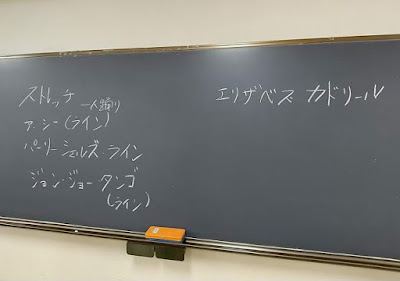 ストレッチ 一人踊り
ア・シー(ライン)
パーリーシェルズ ライン
ジョン・ジョー タンゴ
(ライン)
エリザベス カドリール